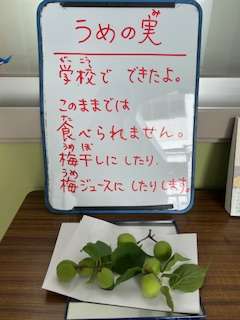 うめの実
学校で できたよ。
このままでは
食べられません。
梅干しにしたり、
梅ジュースにしたりします。